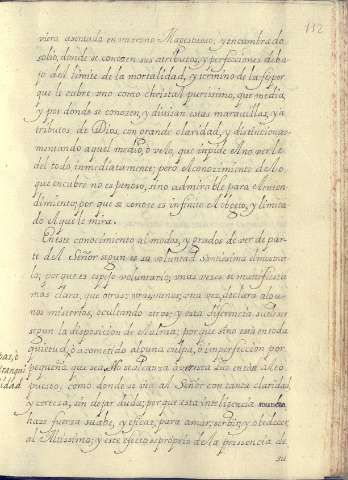 112
viera asentado en un trono Magestuoso, y encumbrado
solio, donde se conocen sus atributos, y perfecciones deba-
jo del limite de la mortalidad, y termino de la fe; por
que le cubre uno como christal purissimo, que media,
y por donde se conosen, y divisan estas maravillas, y a-
tributos de Dios, con grande claridad, y distincion
mentando aquel medio, o velo, que inpide el no verle
del todo inmediatamente; pero el conocimiento de lo
que encubre no es penoso, sino admirable para el enten-
dimiento; por que se conoce es infinito el objeto, y limita-
do el que le mira.
En este conocimiento al modos, y grados de ser de par-
te del Señor segun es su voluntad Santissima de
lo; por que es espejo voluntario; unas veces se manifiesta
mas clara, que otras; una vez declara algu-
nos misterios, ocultando otros; y esta diferencia
segun la disposicion de el alma; por que sino esta en toda
quietud, o a cometido alguna culpa, o imperfeccion por
pequeña que sea, No se alcanza a esta Luz en
puesto, como donde se via al Señor con tanta claridad,
y certeza, sin dejar duda; por que esta inteligencia
hace fuerza suabe, y eficaz, para amar, serbir, y obedecer
al Altissimo; y este efecto es proprio de la pressencia de
su
paz, o
tranqui
lidad